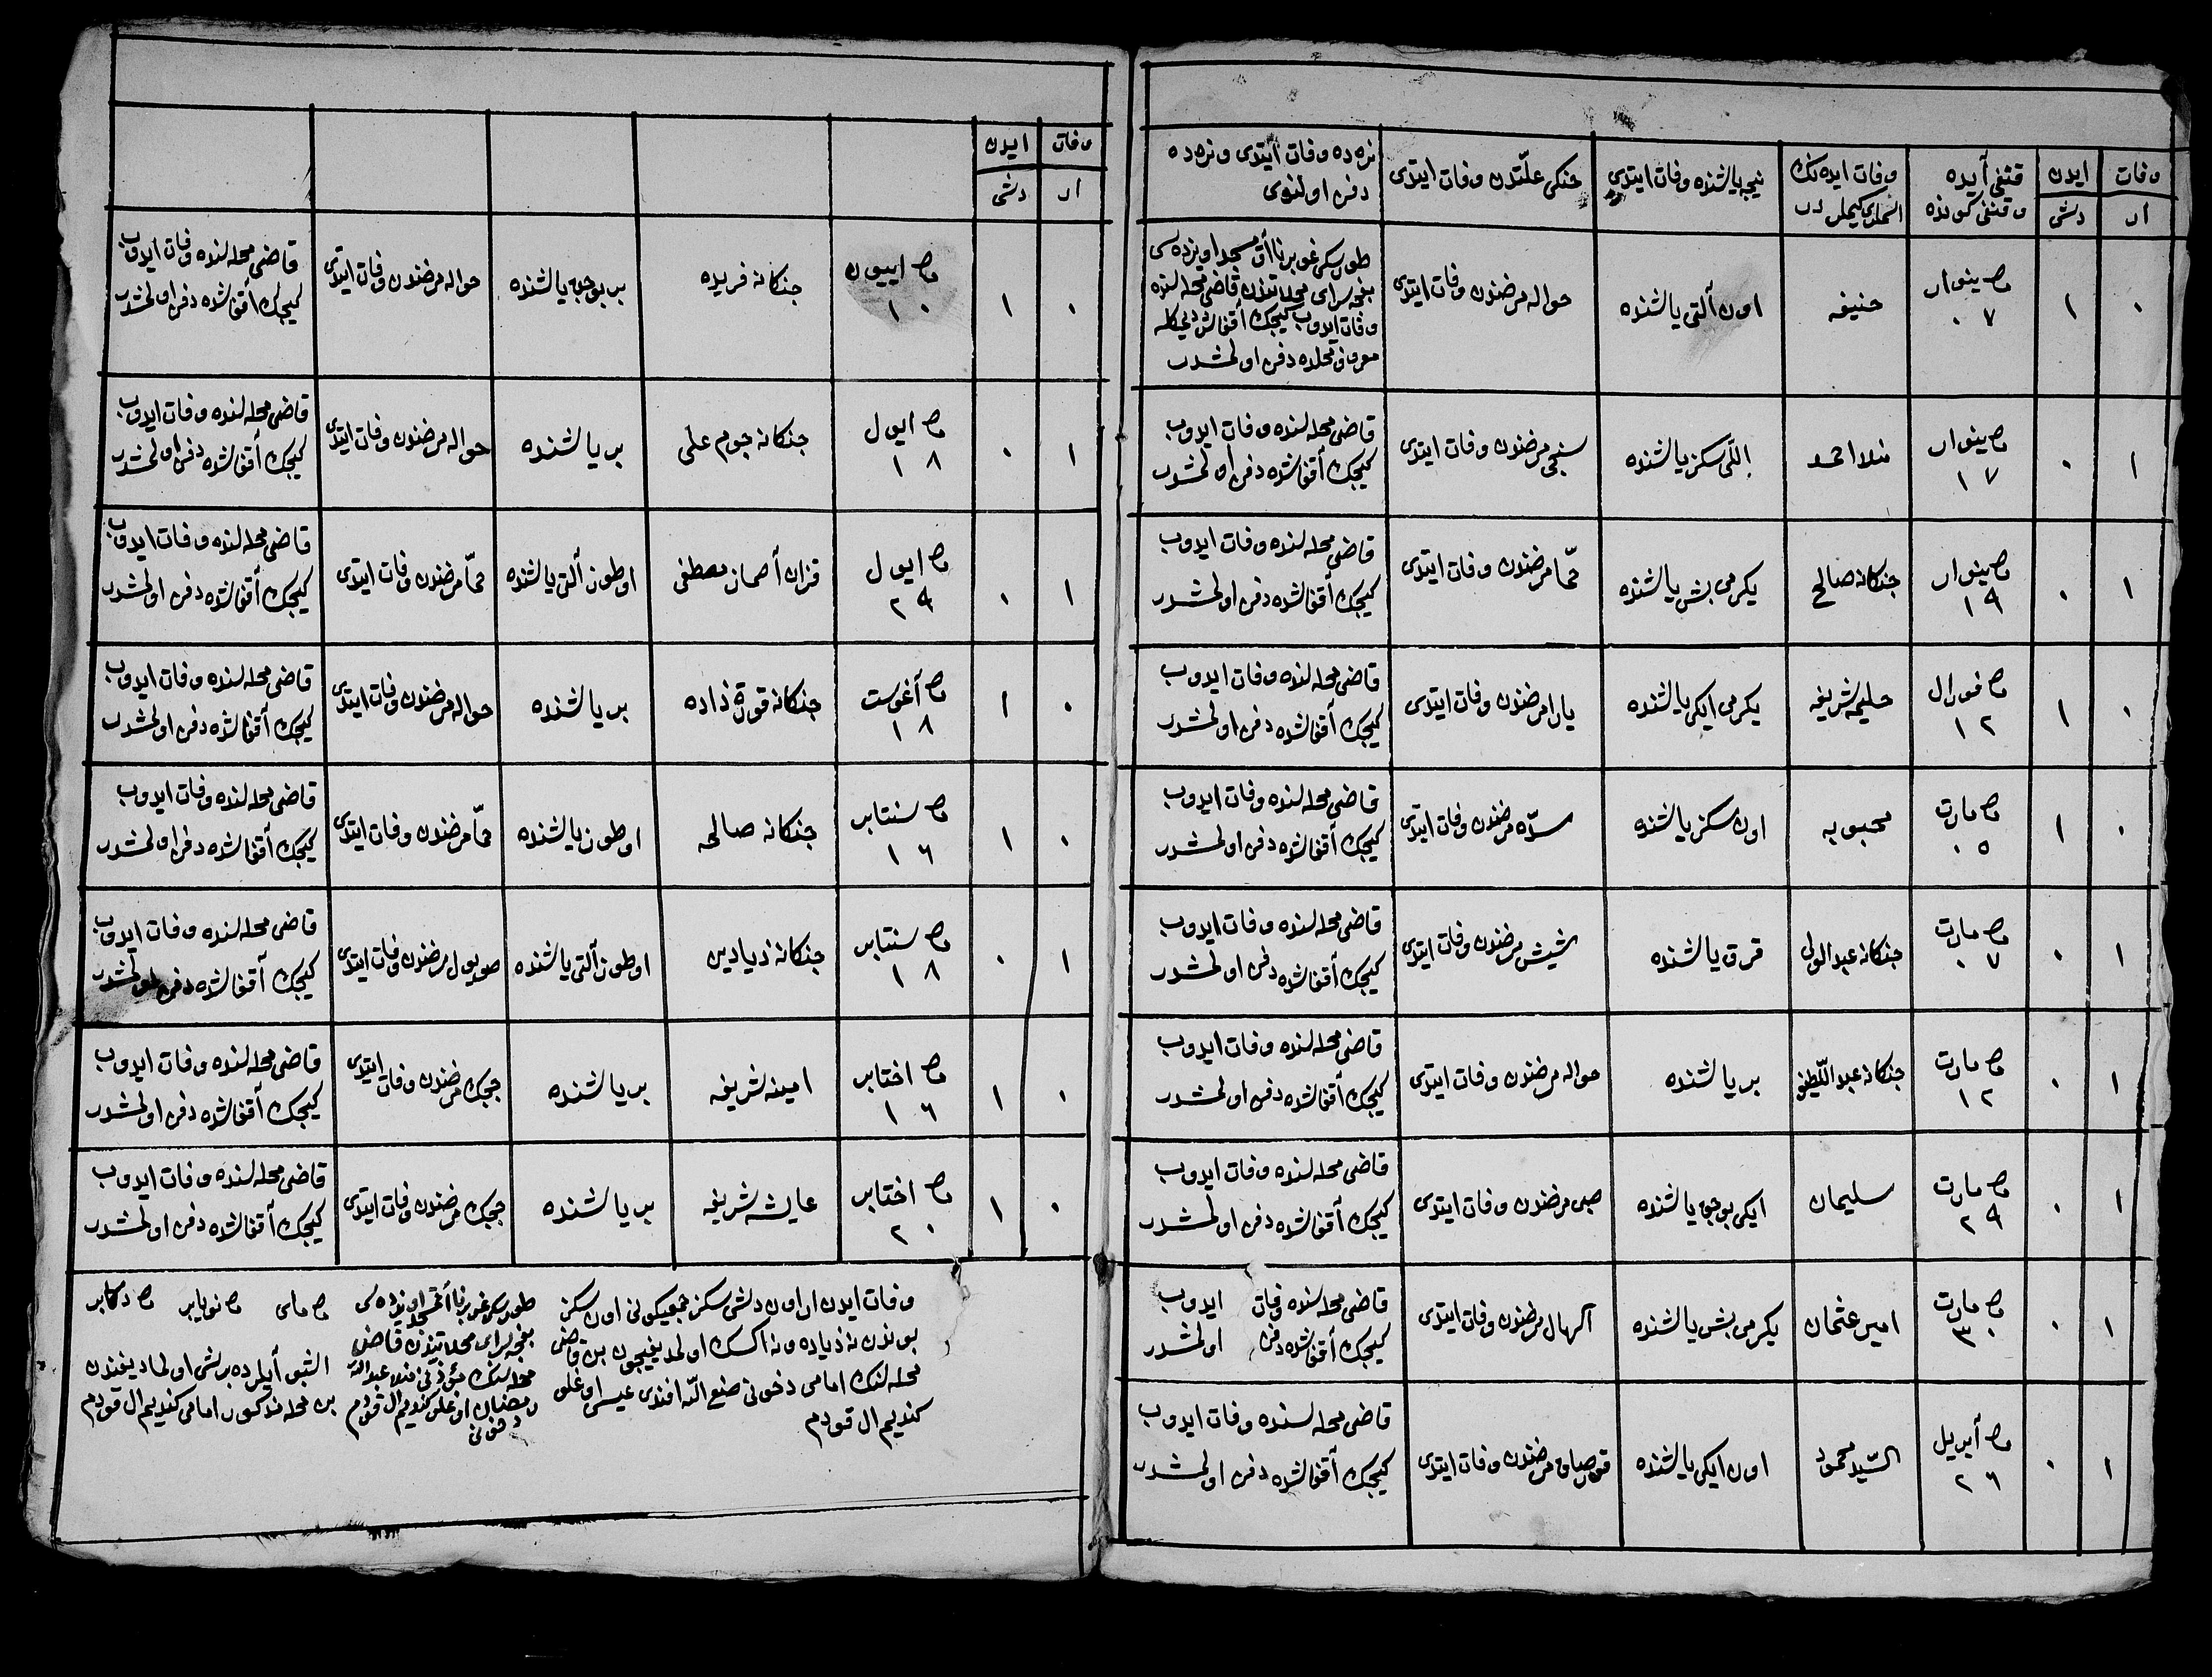 وفات ایدن
ار دشی
قنغی آیده
و قنغی کونده
وفات ایده نڭ
اسملری کیملر در
نیچه یاشنده وفات ایتدی
خنکی علّتدن وفات ایتدی
نره ده وفات ایتدی و نره ده
دفن اولندی
۰ ۱
ینوار
۰۷
حنیفه
اون آلتی یاشنده
حواله مرضندن وفات ایتدی
بغچه سرای محلاتندن قاضی محله سنده
وفات ایدوب کیچك
معروف محلده دفن اولمشدر
۱ ۰
ینوار
۱۷
منلا احمد
اللّی سکز یاشنده
سنجی مرضندن وفات ایتدی
قاضی محله سنده وفات ایدوب
کیچك آقفاشده دفن اولمشدر
۱ ۰
ینوار
۱۹
جنکانه صالح
یکرمی بش یاشنده
حمّا مرضندن وفات ایتدی
قاضی محله سنده وفات ایدوب
کیچك آقفاشده دفن اولمشدر
۰ ۱
فورال
۱۲
حلیمه شریفه
یکرمی ایکی یاشنده
یارا مرضندن وفات ایتدی
قاضی محله سنده وفات ایدوب
کیچك آقفاشده دفن اولمشدر
۰ ۱
مارت
۰۵
محبوبه
اون سکز یاشنده
سدّه مرضندن وفات ایتدی
قاضی محله سنده وفات ایدوب
کیچك آقفاشده دفن اولمشدر
۱ ۰
مارت
۰۷
جنکانه عبدالولی
قرق یاشنده
شیش مرضندن وفات ایتدی
قاضی محله سنده وفات ایدوب
کیچك آقفاشده دفن اولمشدر
۱ ۰
مارت
۱۲
جنکانه عبد اللّطیف
بر یاشنده
حواله مرضندن وفات ایتدی
قاضی محله سنده وفات ایدوب
کیچك آقفاشده دفن اولمشدر
۱ ۰
مارت
۲۹
سلیمان
ایکی بوچق یاشنده
مرضندن وفات ایتدی
قاضی محله سنده وفات ایدوب
کیچك آقفاشده دفن اولمشدر
۱ ۰
مارت
۳۰
امیر عثمان
یکرمی بش یاشنده
مرضندن وفات ایتدی
قاضی محله سنده وفات ایدوب
کیچك آقفاشده دفن اولمشدر
۱ ۰
آبریل
۲۶
السّید محمود
اون ایکی یاشنده
مرضندن وفات ایتدی
قاضی محله سنده وفات ایدوب
کیچك آقفاشده دفن اولمشدر
وفات ایدن
ار دشی
۰ ۱
اییون
۱۰
جنکانه فریده
بر بوچق یاشنده
حواله مرضندن وفات ایتدی
قاضی محله سنده وفات ایدوب
کیچك آقفاشده دفن اولمشدر
۱ ۰
ایول
۱۸
جنکانه جوم علی
بر یاشنده
حواله مرضندن وفات ایتدی
قاضی محله سنده وفات ایدوب
کیچك آقفاشده دفن اولمشدر
۱ ۰
ایول
۲۹
مصطفی
اوطوز آلتی یاشنده
حمّا مرضندن وفات ایتدی
قاضی محله سنده وفات ایدوب
کیچك آقفاشده دفن اولمشدر
۰ ۱
آغوست
۱۸
جنکانه زاده
بر یاشنده
حواله مرضندن وفات ایتدی
قاضی محله سنده وفات ایدوب
کیچك آقفاشده دفن اولمشدر
۰ ۱
سنتابر
۱۶
جنکانه صالحه
اوطوز یاشنده
حمّا مرضندن وفات ایتدی
قاضی محله سنده وفات ایدوب
کیچك آقفاشده دفن اولمشدر
۱ ۰
سنتابر
۱۸
جنکانه
اوطوز آلتی یاشنده
مرضندن وفات ایتدی
قاضی محله سنده وفات ایدوب
کیچك آقفاشده دفن اولمشدر
۰ ۱
اختابر
۱۶
امینه شریفه
بر یاشنده
چچك مرضندن وفات ایتدی
قاضی محله سنده وفات ایدوب
کیچك آقفاشده دفن اولمشدر
۰ ۱
اختابر
۲۰
عایشه شریفه
بر یاشنده
چچك مرضندن وفات ایتدی
قاضی محله سنده وفات ایدوب
کیچك آقفاشده دفن اولمشدر
وفات ایدن ار اون دشی سکز جمعیکونی اون سکز
بوندن نه زیاده و نه اکسك اولمدیغیچون بن قاضی
محله سنڭ امامی صنع اللّه افندی عیسی اوغلی
کندیم ال قودم
بغچه سرای محلاتندن قاضی
محله سنڭ مؤذنی منلا عبدالله
رمضان اوغلی کندیم ال قودم
مای نویابر دکابر
اشبو آیلرده برشی اولمادیغندن
بن محله مذکور امامی کندیم ال قودم